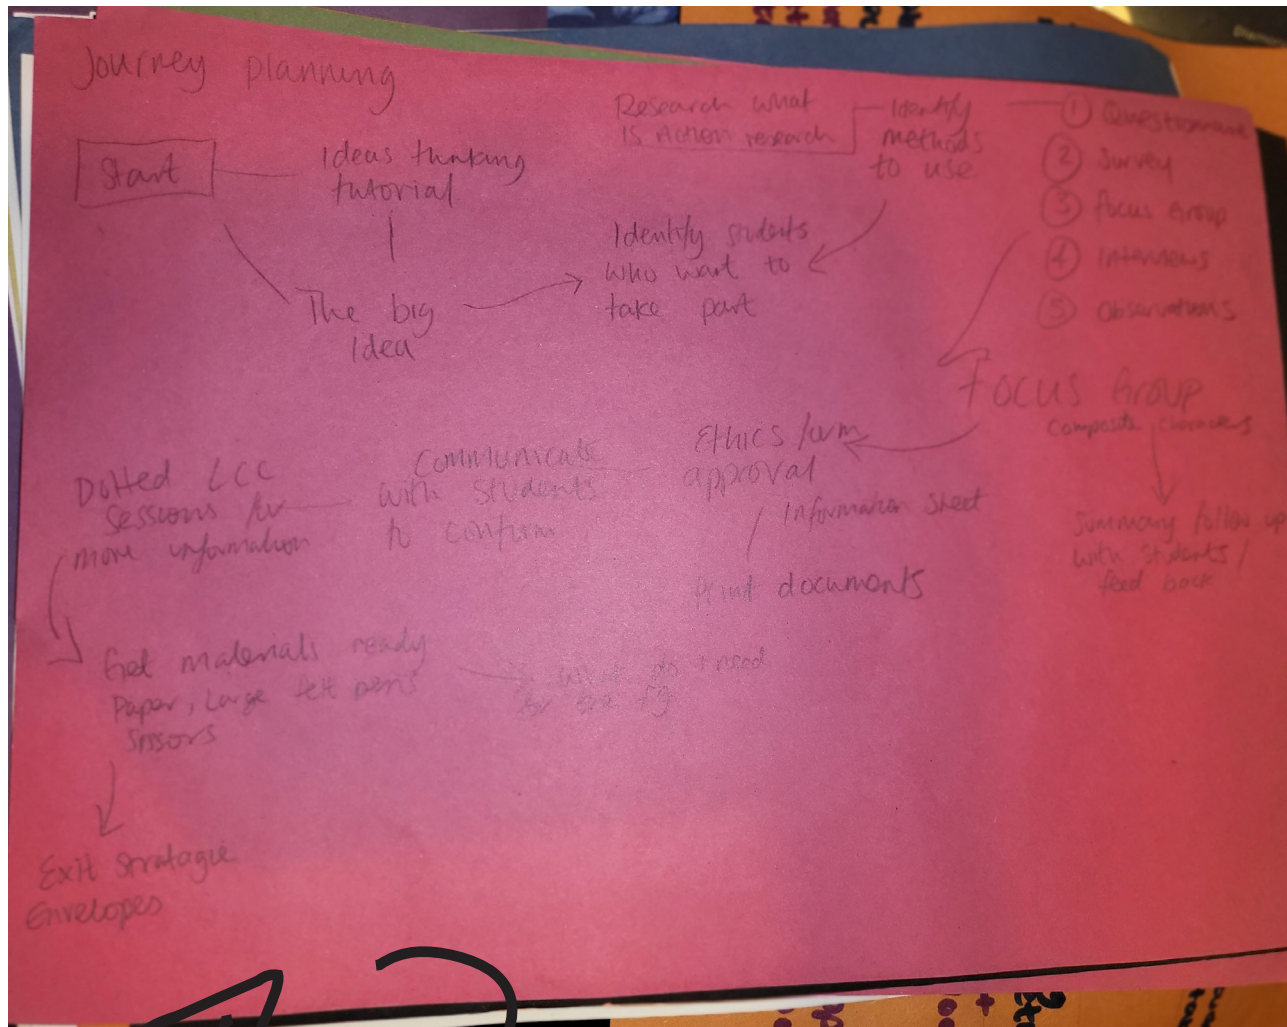 Journey planning
Start
Ideas thinking
tutorial
The big
Idea
Research what
is Action research
Identify
methods
to use
① Questionnaire
② Survey
③ Focus Group
④ Interviews
⑤ Observations
Identify students
who want to
take part
Focus Group
Composite characters
Summary follow up
with students /
feed back
Ethics form
approval
Information sheet
Print documents
Communicate
with students
to confirm
Dotted LCC
sessions for
more information
Get materials ready
Paper, Large felt pens
Sissors
what do I need
for fg
Exit stratagie
Envelopes